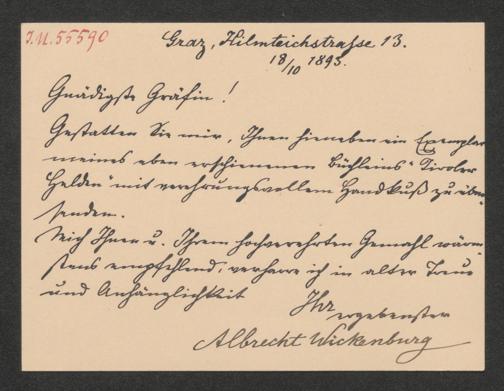 I.N. 55590
Graz, Hilmteichstrasse 13.
18/10 1893.
Gnädigste Gräfin!
Gestatten Sie mir, Ihnen hieneben ein Exemplar
meines eben erschienenen Büchleins "Tiroler
Helden" mit verehrungsvollem Handkuß zu über-
senden.
Mich Ihnen u. Ihrem hochverehrten Gemahl wärm-
stens empfehlend, verharre ich in alter Treue
und Anhänglichkeit
Ihr
ergebenster
Albrecht Wickenburg